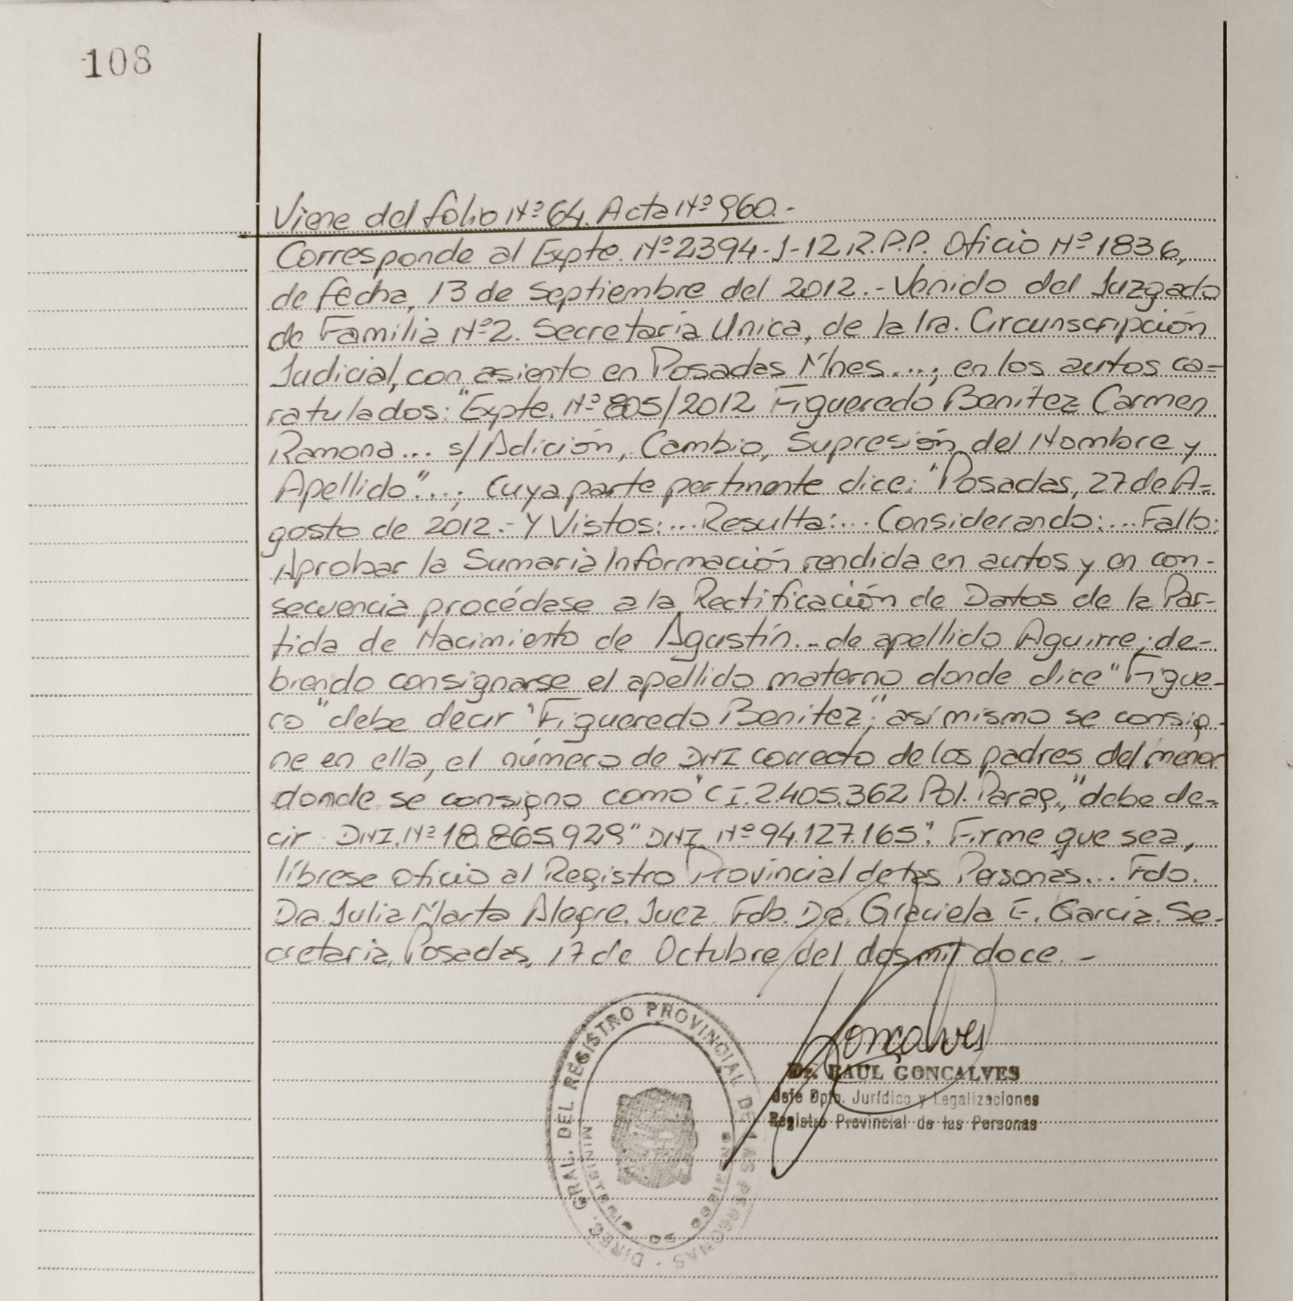 108
Viene del folio Nº 64. Acta Nº 960.-
Corresponde al Expte. Nº 2394-J-12 R.P.P. Oficio Nº 1836,
de fecha, 13 de Septiembre del 2012.- Venido del Juzgado
de Familia Nº2. Secretaría Unica, de la 1ra. Circunscripción
Judicial, con asiento en Posadas Mnes...; en los autos ca=
ratulados: "Expte. Nº 805/2012 Figueredo Benitez Carmen
Ramona... s/Adición, Cambio, Supresión del Nombre y
Apellido"...; Cuya parte pertinente dice: "Posadas, 27 de A=
gosto de 2012.- Y Vistos:... Resulta:... Considerando:... Fallo:
Aprobar la Sumaria Información rendida en autos y en con-
secuencia procédase a la Rectificación de Datos de la Par-
tida de Nacimiento de Agustín... de apellido Aguirre; de-
biendo consignarse el apellido materno donde dice "Figue-
ro" debe decir "Figueredo Benitez"; asímismo se consig-
ne en ella, el número de DNI correcto de los padres del menor
donde se consigno como "C.I. 2.405.362 Pol. Parag.," debe de=
cir DNI. Nº 18.865.929" DNI. Nº 94.127.165". Firme que sea,
líbrese oficio al Registro Provincial de las Personas... Fdo.
Dra. Julia Marta Alegre. Juez. Fdo. Dra. Graciela E. Garcia. Se-
cretaria, Posadas, 17 de Octubre del dos mil doce.-
DIREC. GRAL. DEL REGISTRO PROVINCIAL DE LAS PERSONAS
MINISTERIO DE GOBIERNO
Goncalves
Dr. RAUL GONCALVES
Jefe Dpto. Jurídico y Legalizaciones
Registro Provincial de las Personas